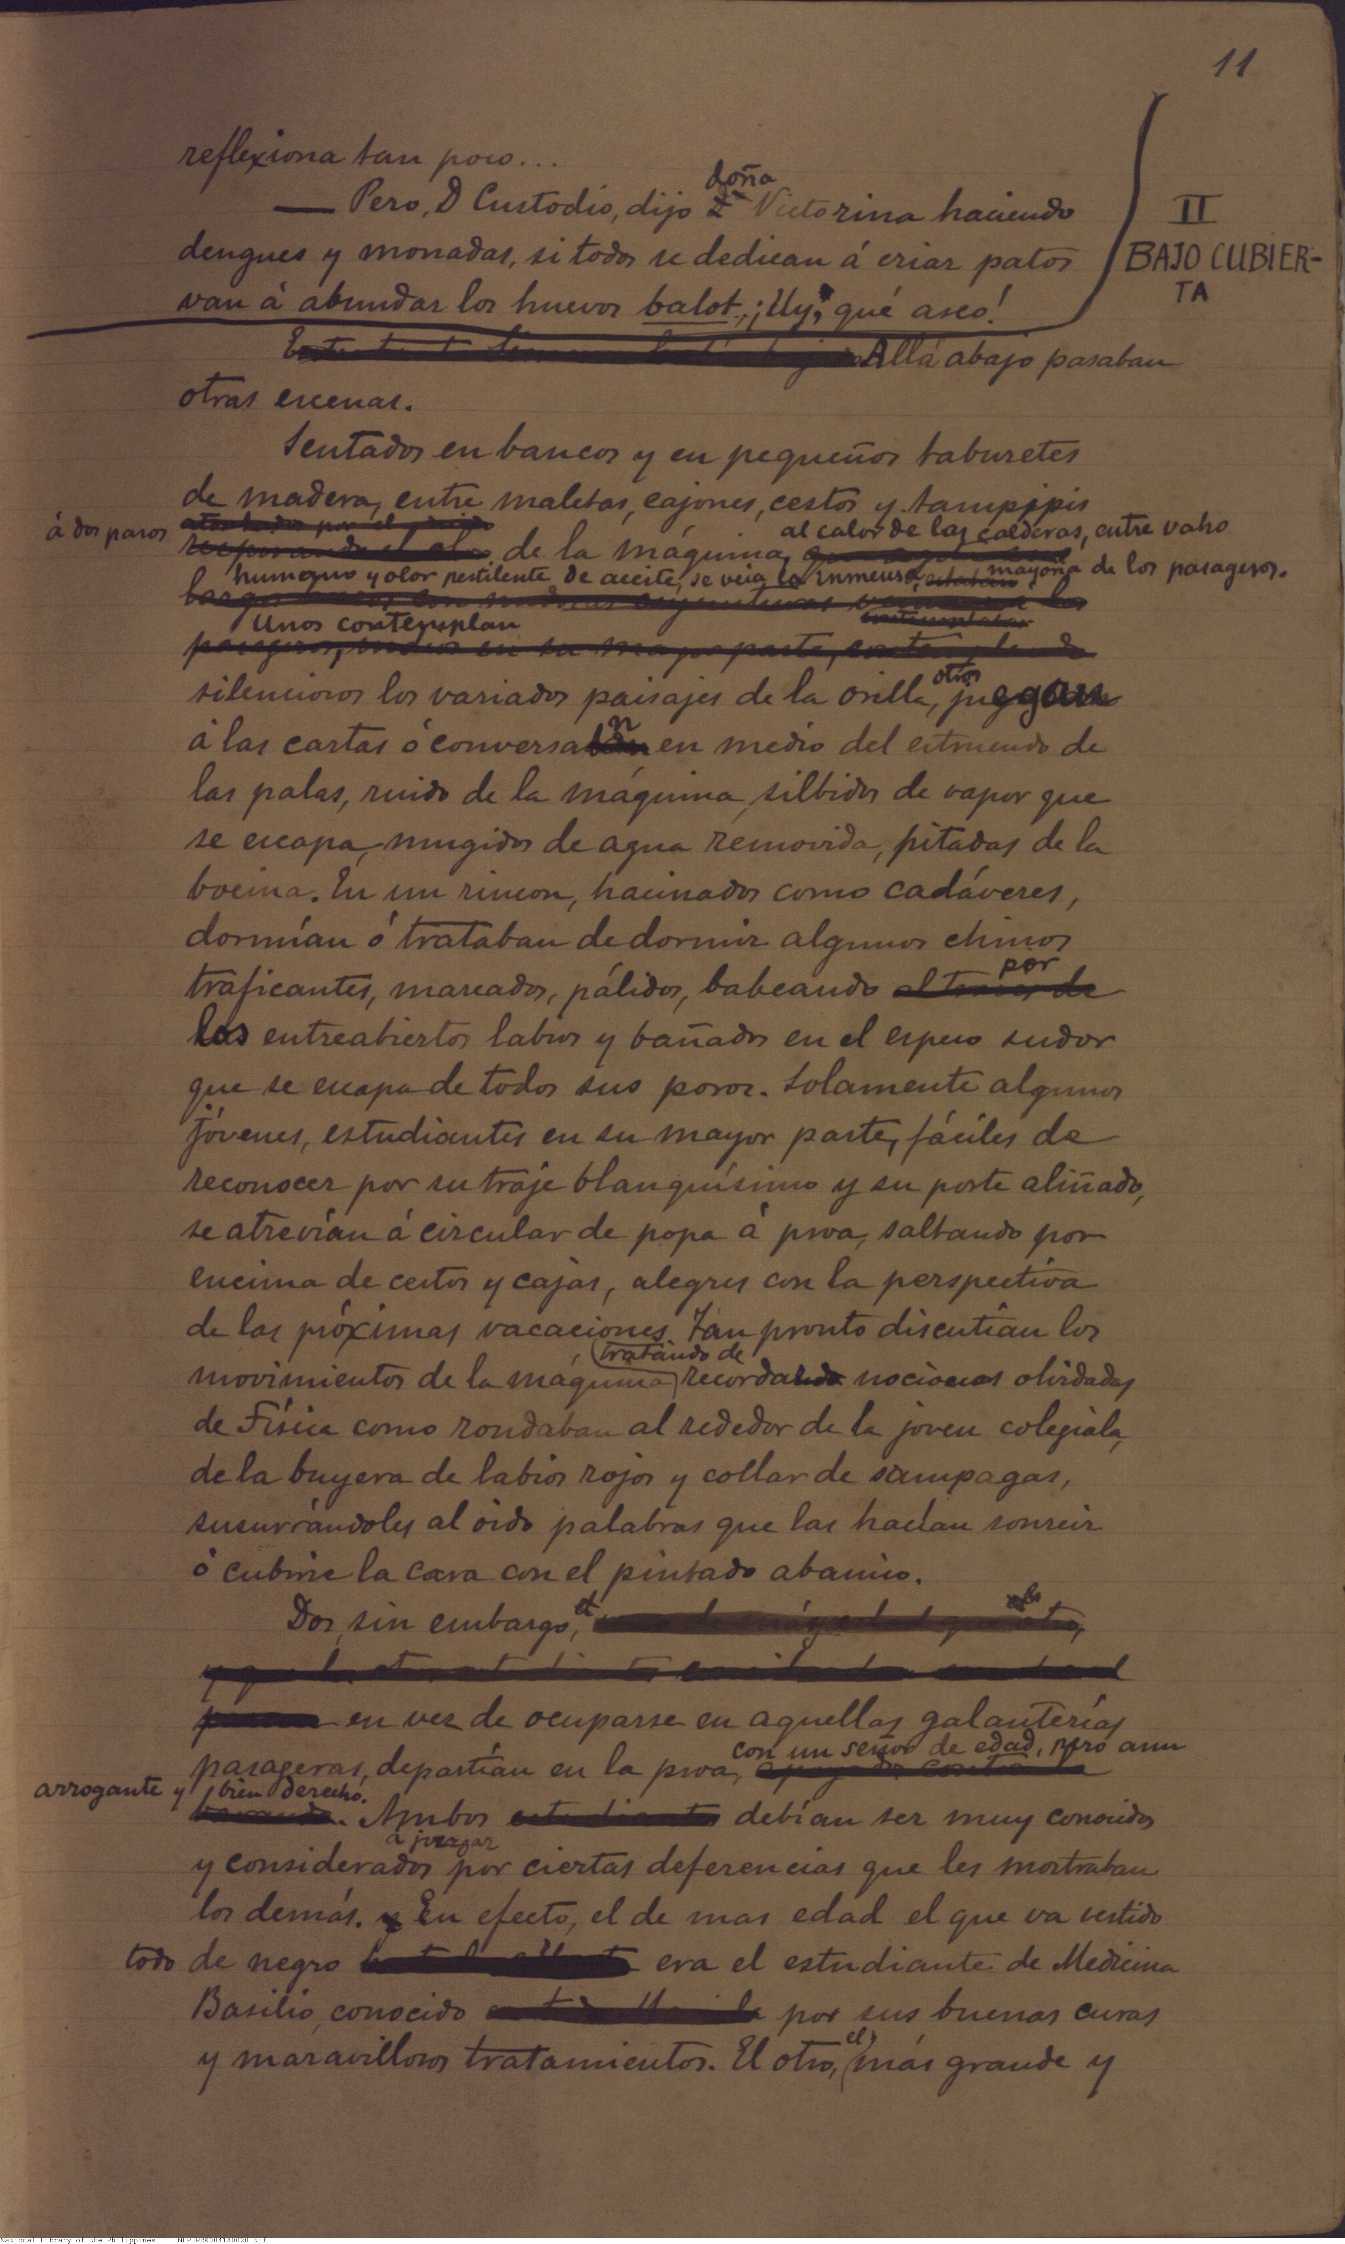 11
reflexiona tan poco...
doña
— Pero, D Custodio, dijo Victorina haciendo
dengues y monadas, si todos se dedican á criar patos
van á abundar los huevos balot, ¡Uy, qué asco!
II
BAJO CUBIER-
TA
Allá abajo pasaban
otras escenas.
Sentados en bancos y en pequeños taburetes
de madera, entre maletas, cajones, cestos y tampipis
á dos pasos de la máquina, al calor de las calderas, entre vaho
humano y olor pestilente de aceite, se veía la inmensa mayoría de los pasageros.
Unos contemplan
silenciosos los variados paisajes de la orilla, otros juegan
á las cartas ó conversan en medio del estruendo de
las palas, ruido de la máquina, silbidos de vapor que
se escapa, mugidos de agua removida, pitadas de la
bocina. En un rincon, hacinados como cadáveres,
dormían ó trataban de dormir algunos chinos
traficantes, mareados, pálidos, babeando por
los entreabiertos labios y bañados en el espeso sudor
que se escapa de todos sus poros. Solamente algunos
jóvenes, estudiantes en su mayor parte, fáciles de
reconocer por su traje blanquísimo y su porte aliñado,
se atrevían á circular de popa á proa, saltando por
encima de cestos y cajas, alegres con la perspectiva
de las próximas vacaciones. Tan pronto discutían los
movimientos de la máquina, tratando de recordar nociones olvidadas
de Física como rondaban al rededor de la joven colegiala,
de la buyera de labios rojos y collar de sampagas,
susurrándoles al oido palabras que las hacían sonreir
ó cubrirse la cara con el pintado abanico.
Dos, sin embargo,
en vez de ocuparse en aquellas galanterías
pasageras, departían en la proa, con un señor de edad, pero aun
arrogante y bien derecho. Ambos debían ser muy conocidos
y considerados á juzgar por ciertas deferencias que les mostraban
los demás. En efecto, el de mas edad el que va vestido
todo de negro era el estudiante de Medicina
Basilio, conocido por sus buenas curas
y maravillosos tratamientos. El otro, el más grande y